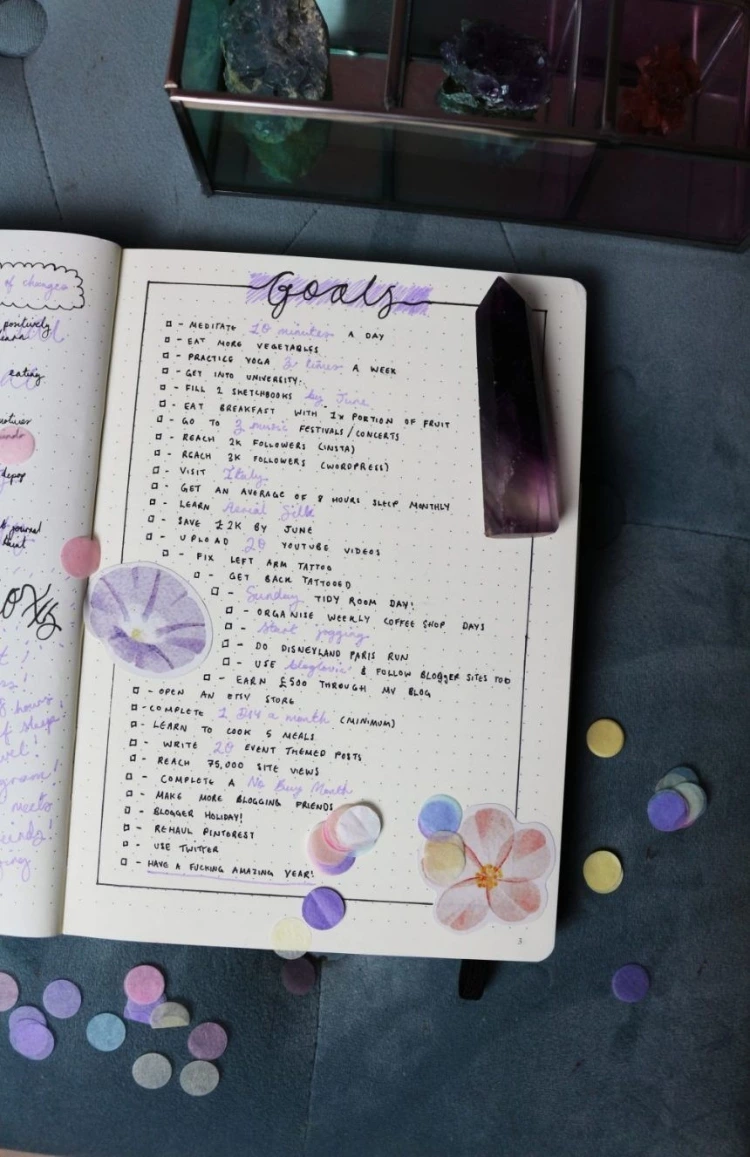 of changes
positively
eating
depop
journal
8 hours
of sleep
Goals
□ - MEDITATE 10 minutes A DAY
□ - EAT MORE VEGETABLES
□ - PRACTICE YOGA 3 times A WEEK
□ - GET INTO UNIVERSITY.
□ - FILL 2 SKETCHBOOKS by June
□ - EAT BREAKFAST WITH 1x PORTION OF FRUIT
□ - GO TO 3 music FESTIVALS/CONCERTS
□ - REACH 2K FOLLOWERS (INSTA)
□ - REACH 3K FOLLOWERS (WORDPRESS)
□ - VISIT Italy
□ - GET AN AVERAGE OF 8 HOURS SLEEP MONTHLY
□ - LEARN Aerial Silks
□ - SAVE £2K BY JUNE
□ - UPLOAD 20 YOUTUBE VIDEOS
□ - FIX LEFT ARM TATTOO
□ - GET BACK TATTOOED
□ - Sunday TIDY ROOM DAY!
□ - ORGANISE WEEKLY COFFEE SHOP DAYS
□ - Start jogging
□ - DO DISNEYLAND PARIS RUN
□ - USE bloglovin' & FOLLOW BLOGGER SITES TOO
□ - EARN £500 THROUGH MY BLOG
□ - OPEN AN ETSY STORE
□ - COMPLETE 1 DIY a month (MINIMUM)
□ - LEARN TO COOK 5 MEALS
□ - WRITE 20 EVENT THEMED POSTS
□ - REACH 75,000 SITE VIEWS
□ - COMPLETE A No Buy Month
□ - MAKE MORE BLOGGING FRIENDS
□ - BLOGGER HOLIDAY!
□ - REHAUL PINTEREST
□ - USE TWITTER
□ - HAVE A FUCKING AMAZING YEAR!
5